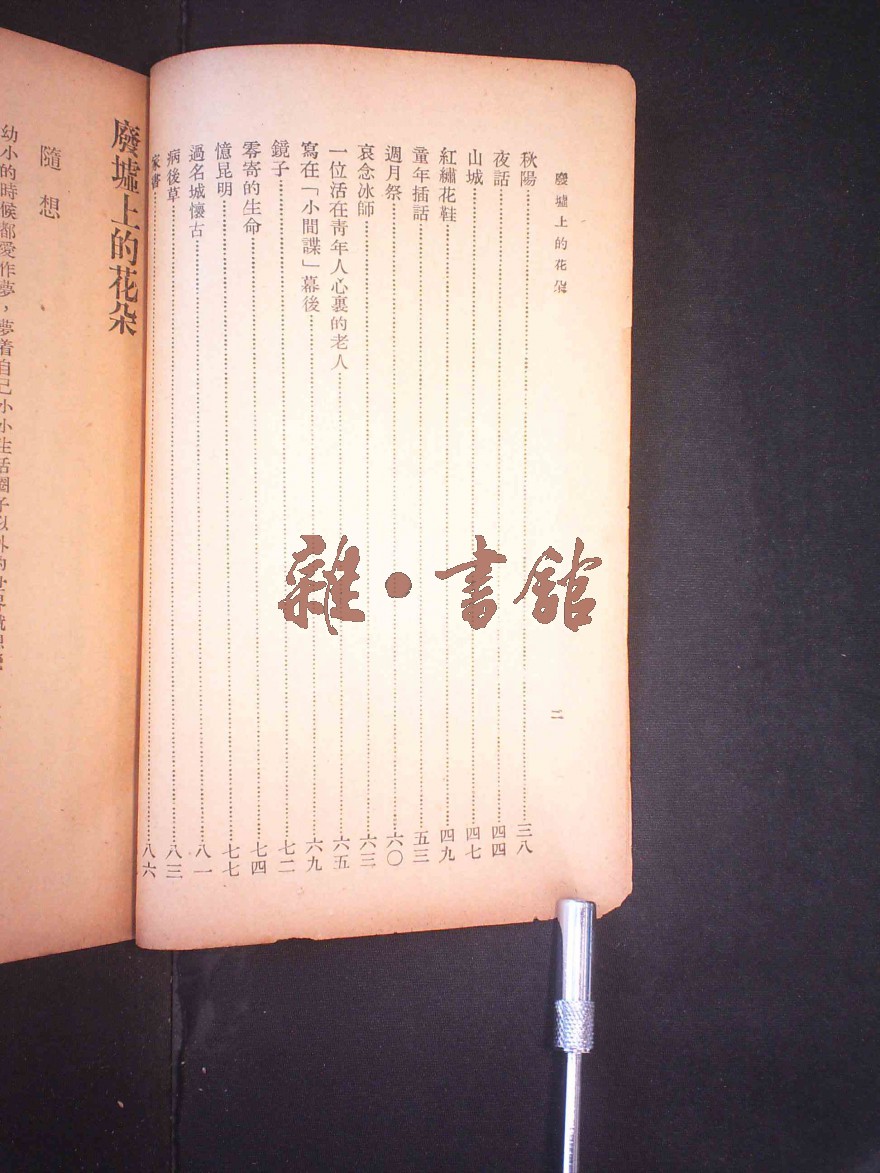 廢墟上的花朶
二
秋陽……三八
夜話……四四
山城……四七
紅繡花鞋……四九
童年插話……五三
週月祭……六〇
哀念冰師……六三
一位活在靑年人心裏的老人……六五
寫在「小間諜」幕後……六九
鏡子……七二
零寄的生命……七四
憶昆明……七七
過名城懷古……八一
病後草……八三
家書……八六
廢墟上的花朶
隨想
幼小的時候都愛作夢，夢着自己小小生活圈子以外的世界
雜•書館